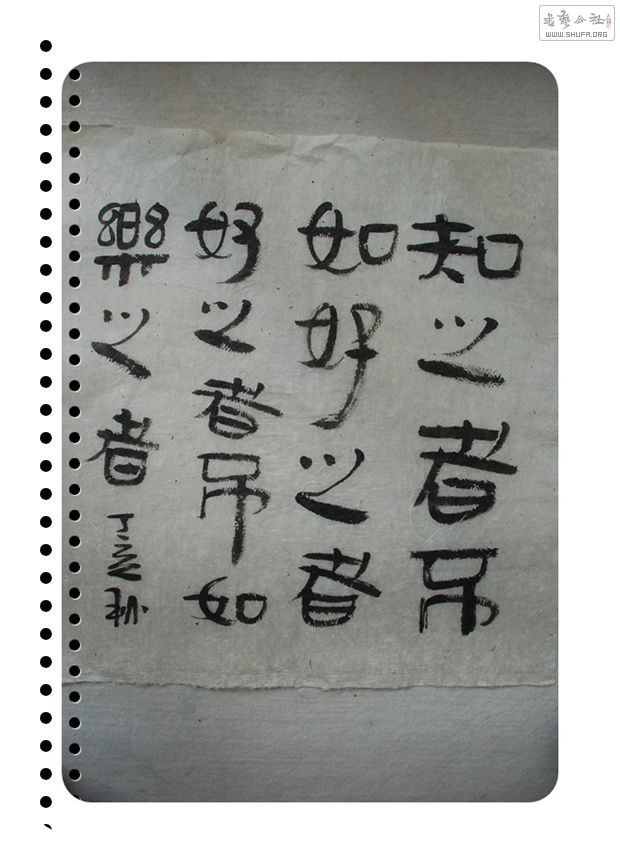 知之者不
如好之者
好之者不如
樂之者
書藝公社
WWW.SHUFA.ORG